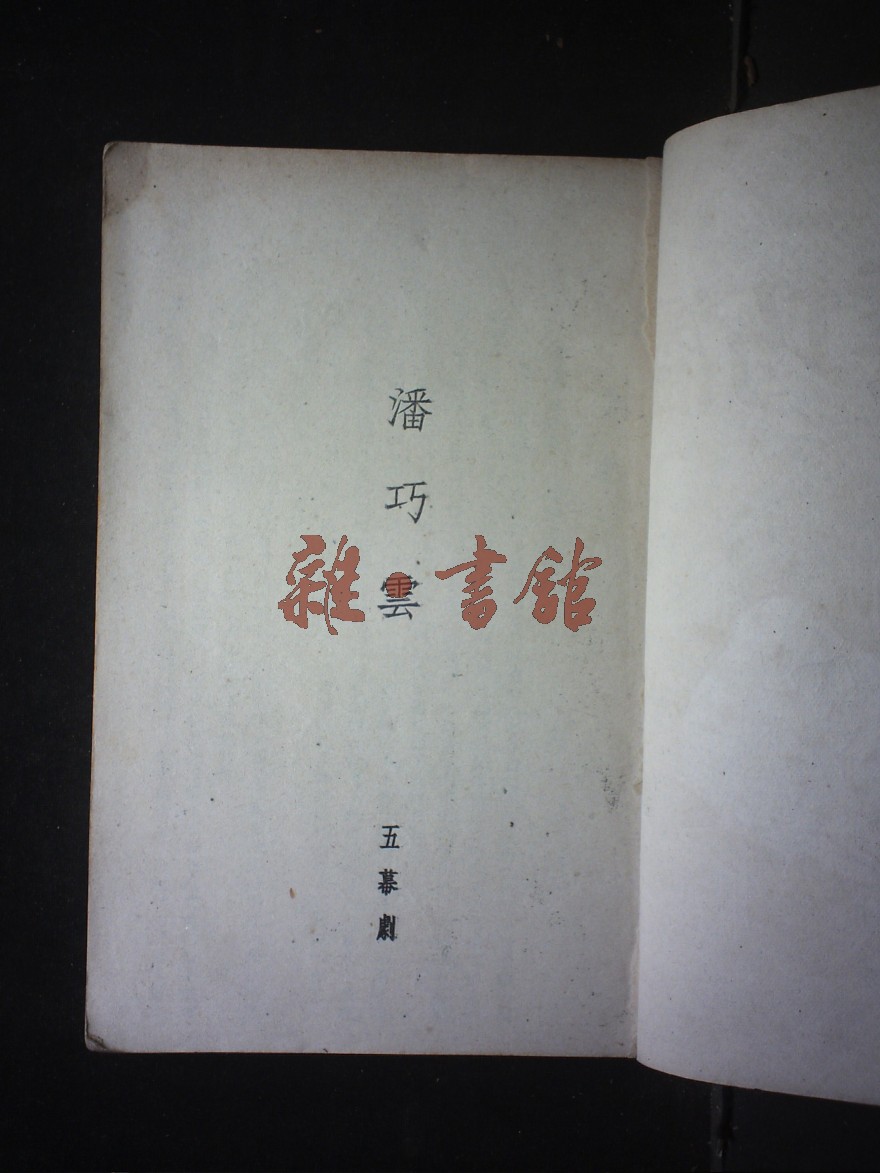 潘巧雲
雜·書館
五幕劇